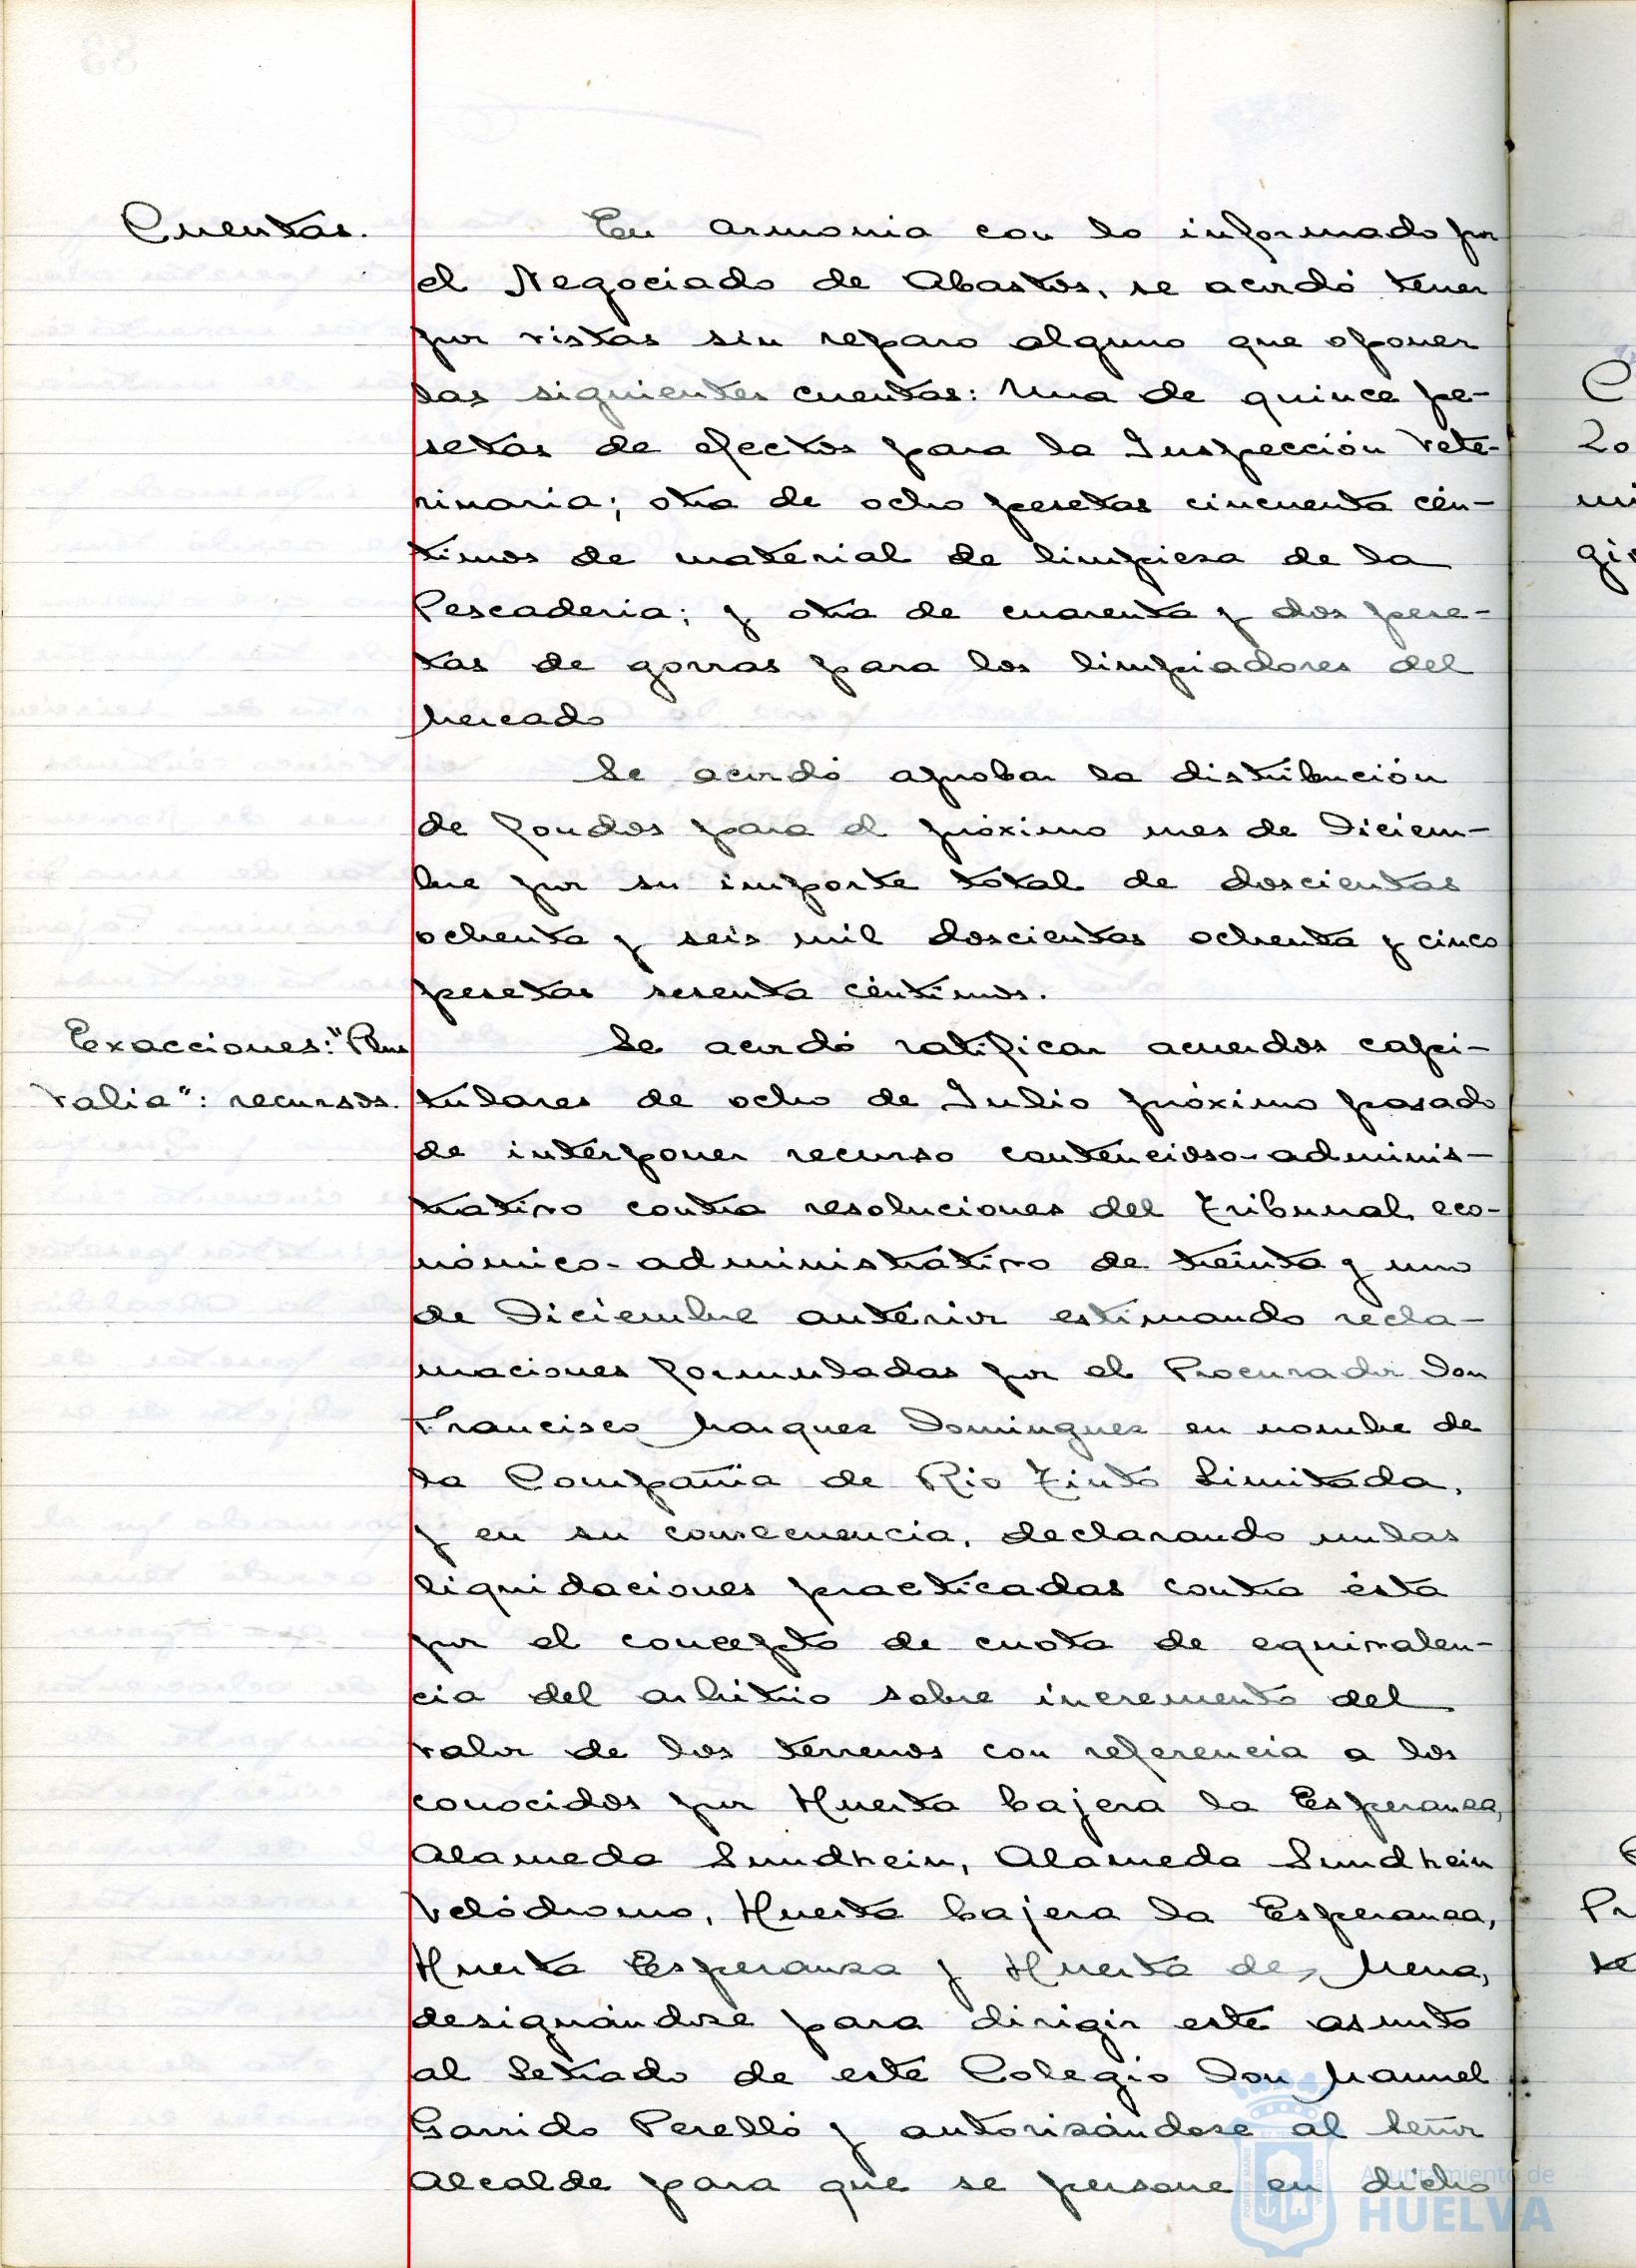 Cuentas.
En armonia con lo informado por
el Negociado de Abastos, se acordó tener
por vistas sin reparo alguno que oponer
las siguientes cuentas: Una de quince pe-
setas de efectos para la Inspección Vete-
rinaria; otra de ocho pesetas cincuenta cén-
timos de material de limpieza de la
Pescaderia; y otra de cuarenta y dos pese-
tas de gorras para los limpiadores del
Mercado
Se acordó aprobar la distribución
de fondos para el próximo mes de Diciem-
bre por su importe total de doscientas
ochenta y seis mil doscientas ochenta y cinco
pesetas sesenta céntimos.
Exacciones: "Plus
Valia": recursos.
Se acordó ratificar acuerdos capi-
tulares de ocho de Julio próximo pasado
de interponer recurso contencioso-adminis-
trativo contra resoluciones del Tribunal eco-
nómico-administrativo de treinta y uno
de Diciembre anterior estimando recla-
maciones formuladas por el Procurador Don
Francisco Marquez Dominguez en nombre de
la Compañia de Rio Tinto Limitada,
y en su consecuencia, declarando nulas
liquidaciones practicadas contra ésta
por el concepto de cuota de equivalen-
cia del arbitrio sobre incremento del
valor de los terrenos con referencia a los
conocidos por Huerta bajera la Esperanza,
Alameda Sundhein, Alameda Sundhein
Velódromo, Huerta bajera la Esperanza,
Huerta Esperanza y Huerta de Mena,
designándose para dirigir este asunto
al Letrado de este Colegio Don Manuel
Garrido Perelló y autorizándose al Señor
Alcalde para que se persone en dicho
Ayuntamiento de
HUELVA